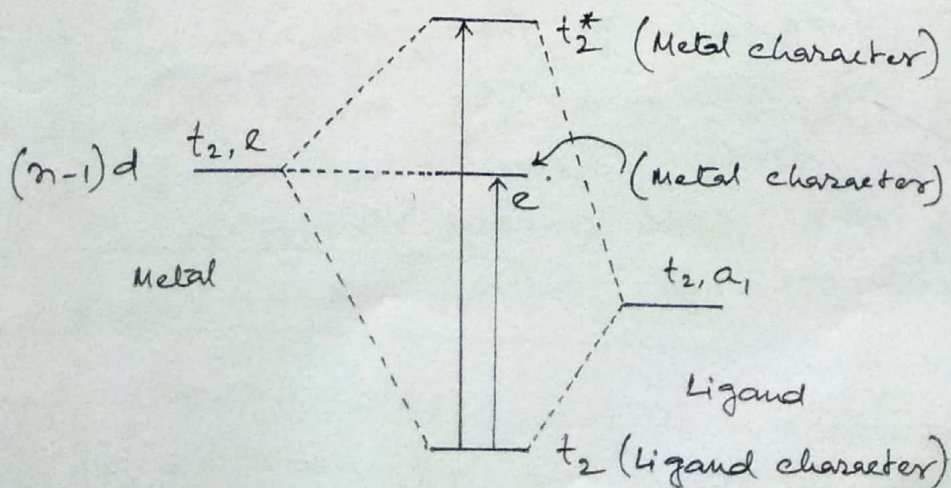 t₂* (Metal character)
(n-1)d
t₂, e
(Metal character)
e
Metal
t₂, a₁
Ligand
t₂ (Ligand character)